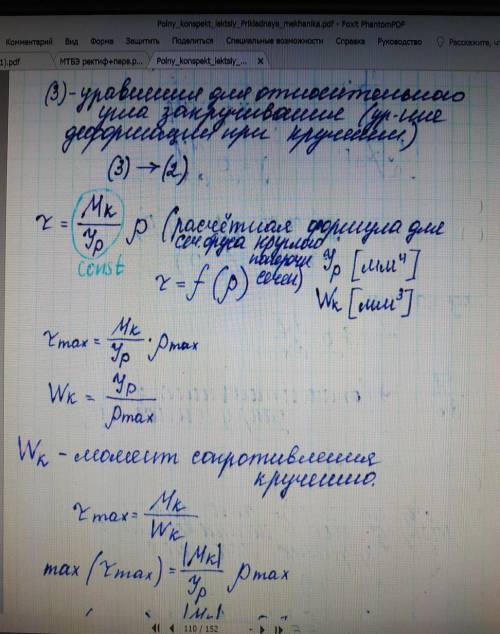 Polny_konspekt_lektsiy_Prikladnaya_mekhanika.pdf - Foxit PhantomPDF
Комментарий Вид Форма Защитить Поделиться Специальные возможности Справка Руководство Расскажите, что
1).pdf МТБЭ ректиф+перв.p... Polny_konspekt_lektsiy_... ×
(3) - уравнения для относительного
угла закручивания (ур-ние
деформации при кручении)
(3) → (2)
τ = Mк/Jρ ρ (расчётная формула для
const
сеч. бруса круглого
поперечн
сечен)
τ = f(ρ)
Jρ [мм⁴]
Wк [мм³]
τmax = Mк/Jρ · ρmax
Wк = Jρ/ρmax
Wк - момент сопротивления
кручению.
τmax = Mк/Wк
max (τmax) = |Mк|/Jρ ρmax
110 / 152